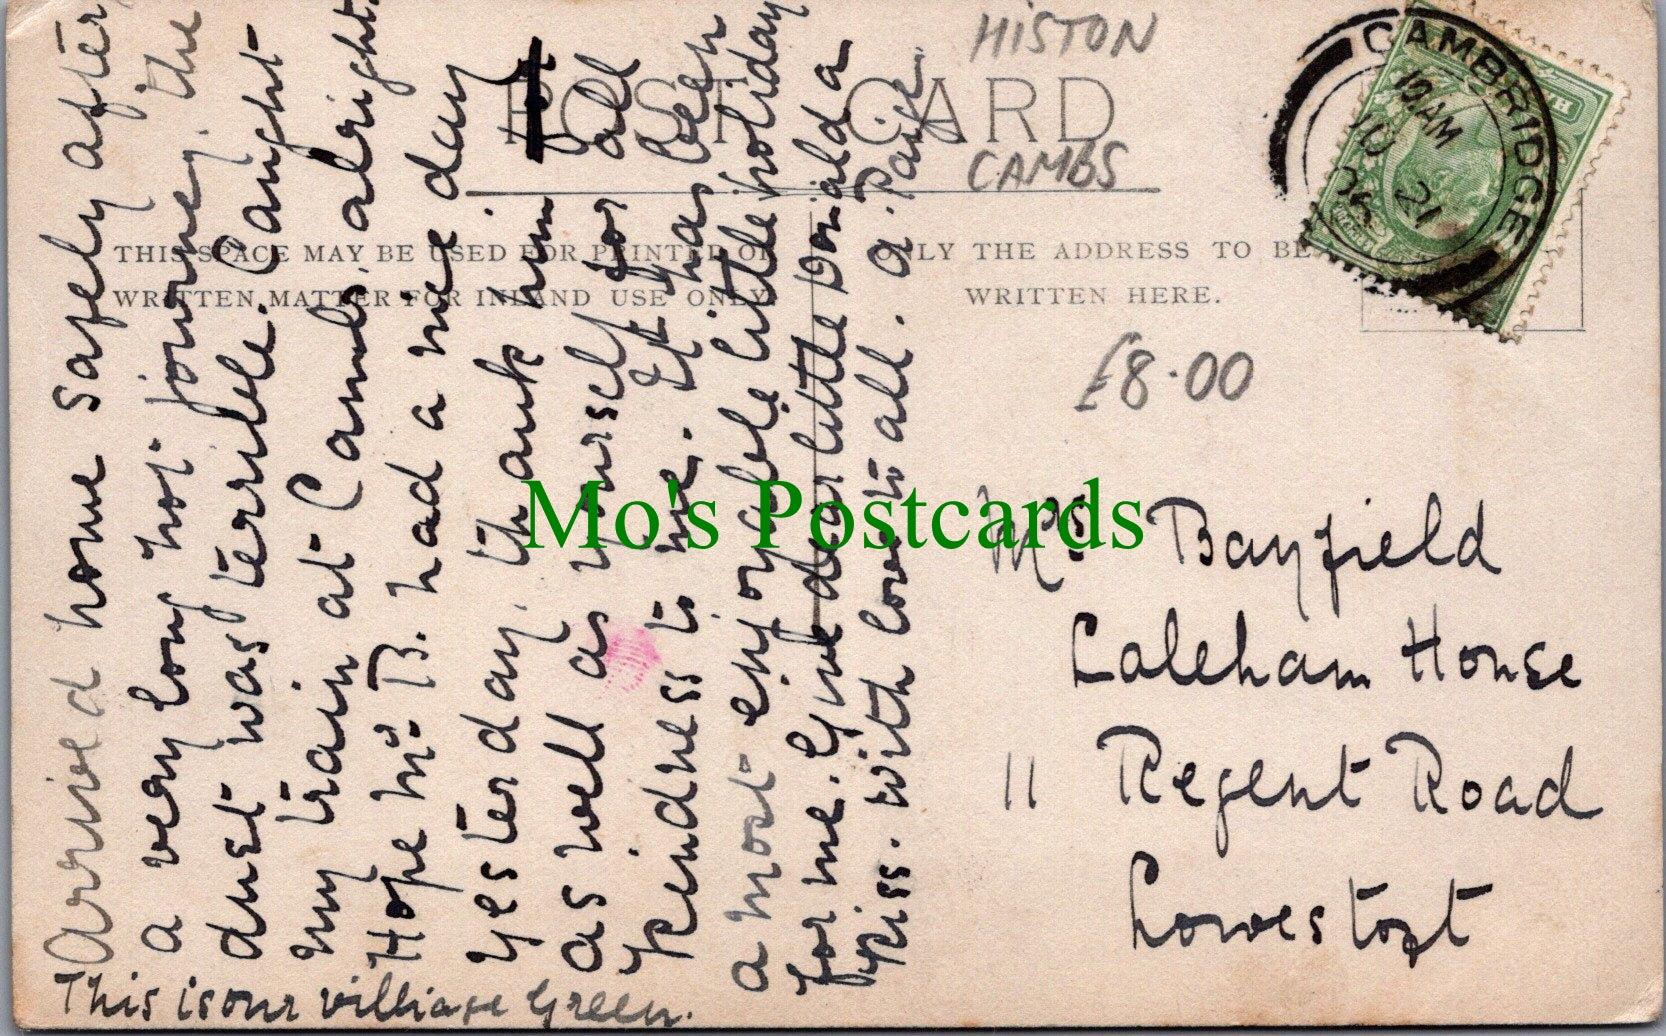 HISTON
POST CARD
CAMBS
THIS SPACE MAY BE USED FOR PRINTED OR
WRITTEN MATTER FOR INLAND USE ONLY.
ONLY THE ADDRESS TO BE
WRITTEN HERE.
CAMBRIDGE
10 AM
JU 21
£8.00
Mo's Postcards
Mrs Bayfield
Laleham House
11 Regent Road
Lowestoft
Arrived home safely after
a very long hot journey. the
dust was terrible. Caught
my train at Cambs. alright.
Hope Mr B. had a nice day
yesterday. thank him
as well as yourself for all
kindness to me. It has been
a most enjoyable little holiday
for me. Give dear little Donald a
kiss. with love to all. a. Paige.
This is our villiage Green.